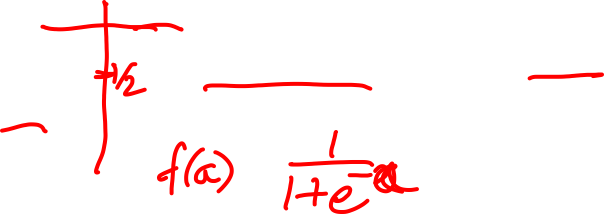 1/2
f(a) 1/(1+e^-a)